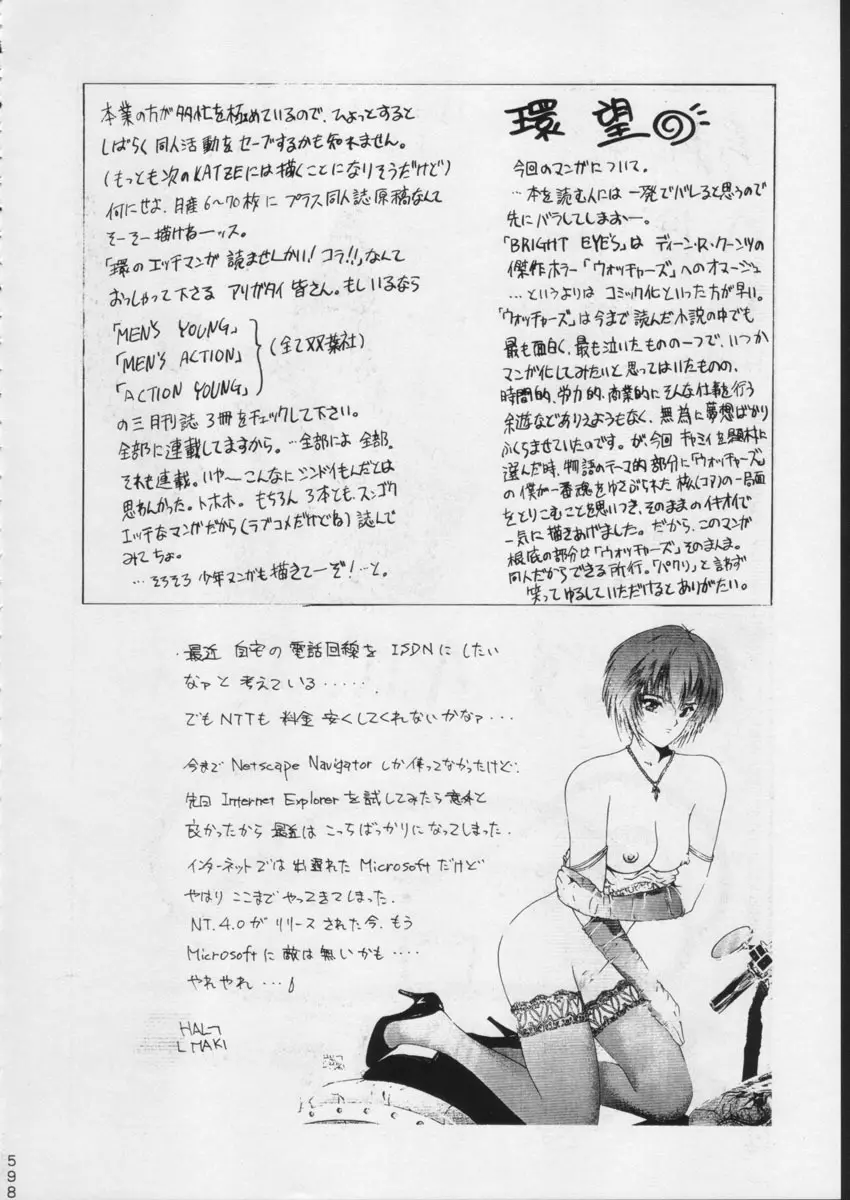 環望
今回のマンガについて。
…本を読む人には一発でバレると思うので
先にバラしてしまおー。
「BRIGHT EYE'S」は ディーン・R・クーンツの
傑作ホラー「ウォッチャーズ」へのオマージュ
…というよりは コミック化といった方が早い。
「ウォッチャーズ」は今まで読んだ小説の中でも
最も面白く、最も泣いたものの一つで、いつか
マンガ化してみたいと思ってはいたものの、
時間的、労力的、商業的にそんな仕事を行う
余遊などありえようもなく、無為に夢想ばかり
ふくらませていたのです。が、今回 キャミィを題材に
選んだ時、物語のテーマ的部分に「ウォッチャーズ」
の僕が一番魂をゆさぶられた 核(コア)の一局面
をとりこむことを思いつき、そのままのイキオイで
一気に描きあげました。だから、このマンガ
根底の部分は「ウォッチャーズ」そのまんま。
同人だからできる所行。「パクリ」と言わず
笑ってゆるしていただけるとありがたい。
本業の方が多忙を極めているので、ひょっとすると
しばらく同人活動をセーブするかも知れません。
(もっとも次のKATZEには描くことになりそうだけど)
何にせよ、月産6〜70枚に プラス同人誌原稿なんて
そーそー描けねーッス。
「環のエッチマンガが 読ませんかい!コラ!!」なんて
おっしゃって下さる アリガタイ 皆さん。もしいるなら
「MEN'S YOUNG」
「MEN'S ACTION」 (全て双葉社)
「ACTION YOUNG」
の三月刊誌 3冊をチェックして下さい。
全部に連載してますから。…全部によ 全部。
それも連載。いや〜こんなにシンドイもんだとは
思わんかった。トホホ。もちろん 3本とも、スンゴク
エッチなマンガだから(ラブコメだけどね) 読んで
みてちょ。
…そろそろ 少年マンガも描きてーぞ!…と。
・最近 自宅の 電話回線を ISDNに したい
なァと 考えている・・・・・.
でもNTTも 料金 安くしてくれないかなァ・・・
今まで Netscape Navigator しか使ってなかったけど:
先回 Internet Explorerを試してみたら意外と
良かったから 最近は こっちばっかりになってしまった.
インターネットでは 出遅れた Microsoftだけど
やはり ここまで やってきてしまった.
NT.4.0が リリース された今、もう
Microsoftに 敵は 無いかも・・・・
やれやれ・・・
598